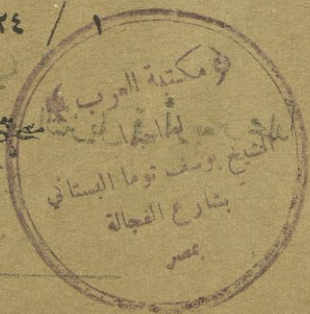 ٢٤ / ١
﴿ مكتبة العرب ﴾
لصاحبها
الشيخ يوسف توما البستاني
بشارع الفجالة
بمصر